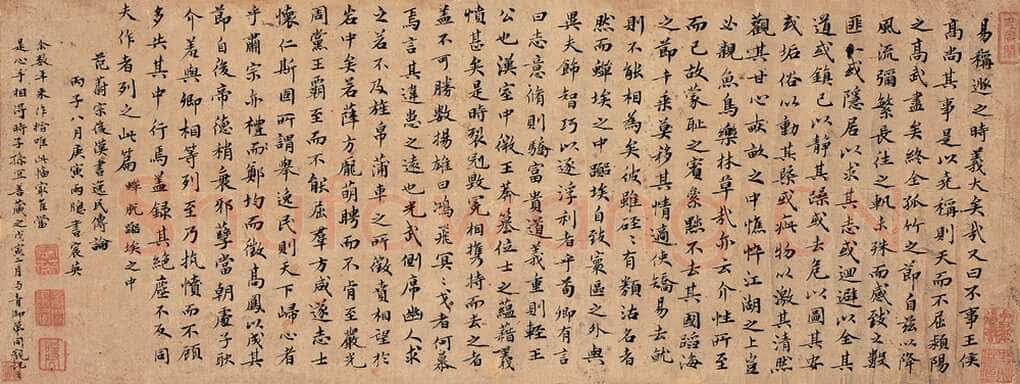 易稱遯之時義大矣哉又曰不事王侯
高尚其事是以堯稱則天而不屈潁陽
之高武盡矣終全孤竹之節自茲以降
風流彌繁長往之軌未殊而感致之數
匪一或隱居以求其志或迴避以全其
道或鎮己以靜其躁或去危以圖其安
或垢俗以動其槩或疵物以激其清然
觀其甘心畝畝之中憔悴江湖之上豈
必親魚鳥樂林草哉亦云介性所至
而已故蒙恥之賓屢黜不去其國蹈海
之節千乘莫移其情適使矯易去就
則不能相為矣彼雖硜硜有類沽名者
然而蟬埃之中䟽埃自致寰區之外與
異夫飾智巧以逐浮利者乎荀卿有言
曰志意脩則驕富貴道義重則輕王
公也漢室中微王莽篡位士之蘊藉義
憤甚矣是時裂冠毀冕相攜持而去之者
蓋不可勝數揚雄曰鴻飛冥冥弋者何慕
焉言其違患之遠也光武側席幽人求
之若不及旌帛蒲車之所徵賁相望於
岩中矣若薛方龐萌聘而不肯至嚴光
周黨王霸至而不能屈羣方咸遂志士
懷仁斯固所謂舉逸民則天下歸心者
乎肅宗亦禮而鄭均而徵高鳳以成其
節自後帝德稍衰邪孽當朝處子耿
介羞與卿相等列至乃抗憤而不顧
多失其中行焉蓋錄其絕塵不反同
夫作者列之此篇 蟬蛻囂埃之中
范蔚宗後漢書逸民傳論
丙子八月庚寅雨牕書宸英
余數年來作楷唯此幅家崔當
是心手相得時子孫宜善藏之戊寅二月